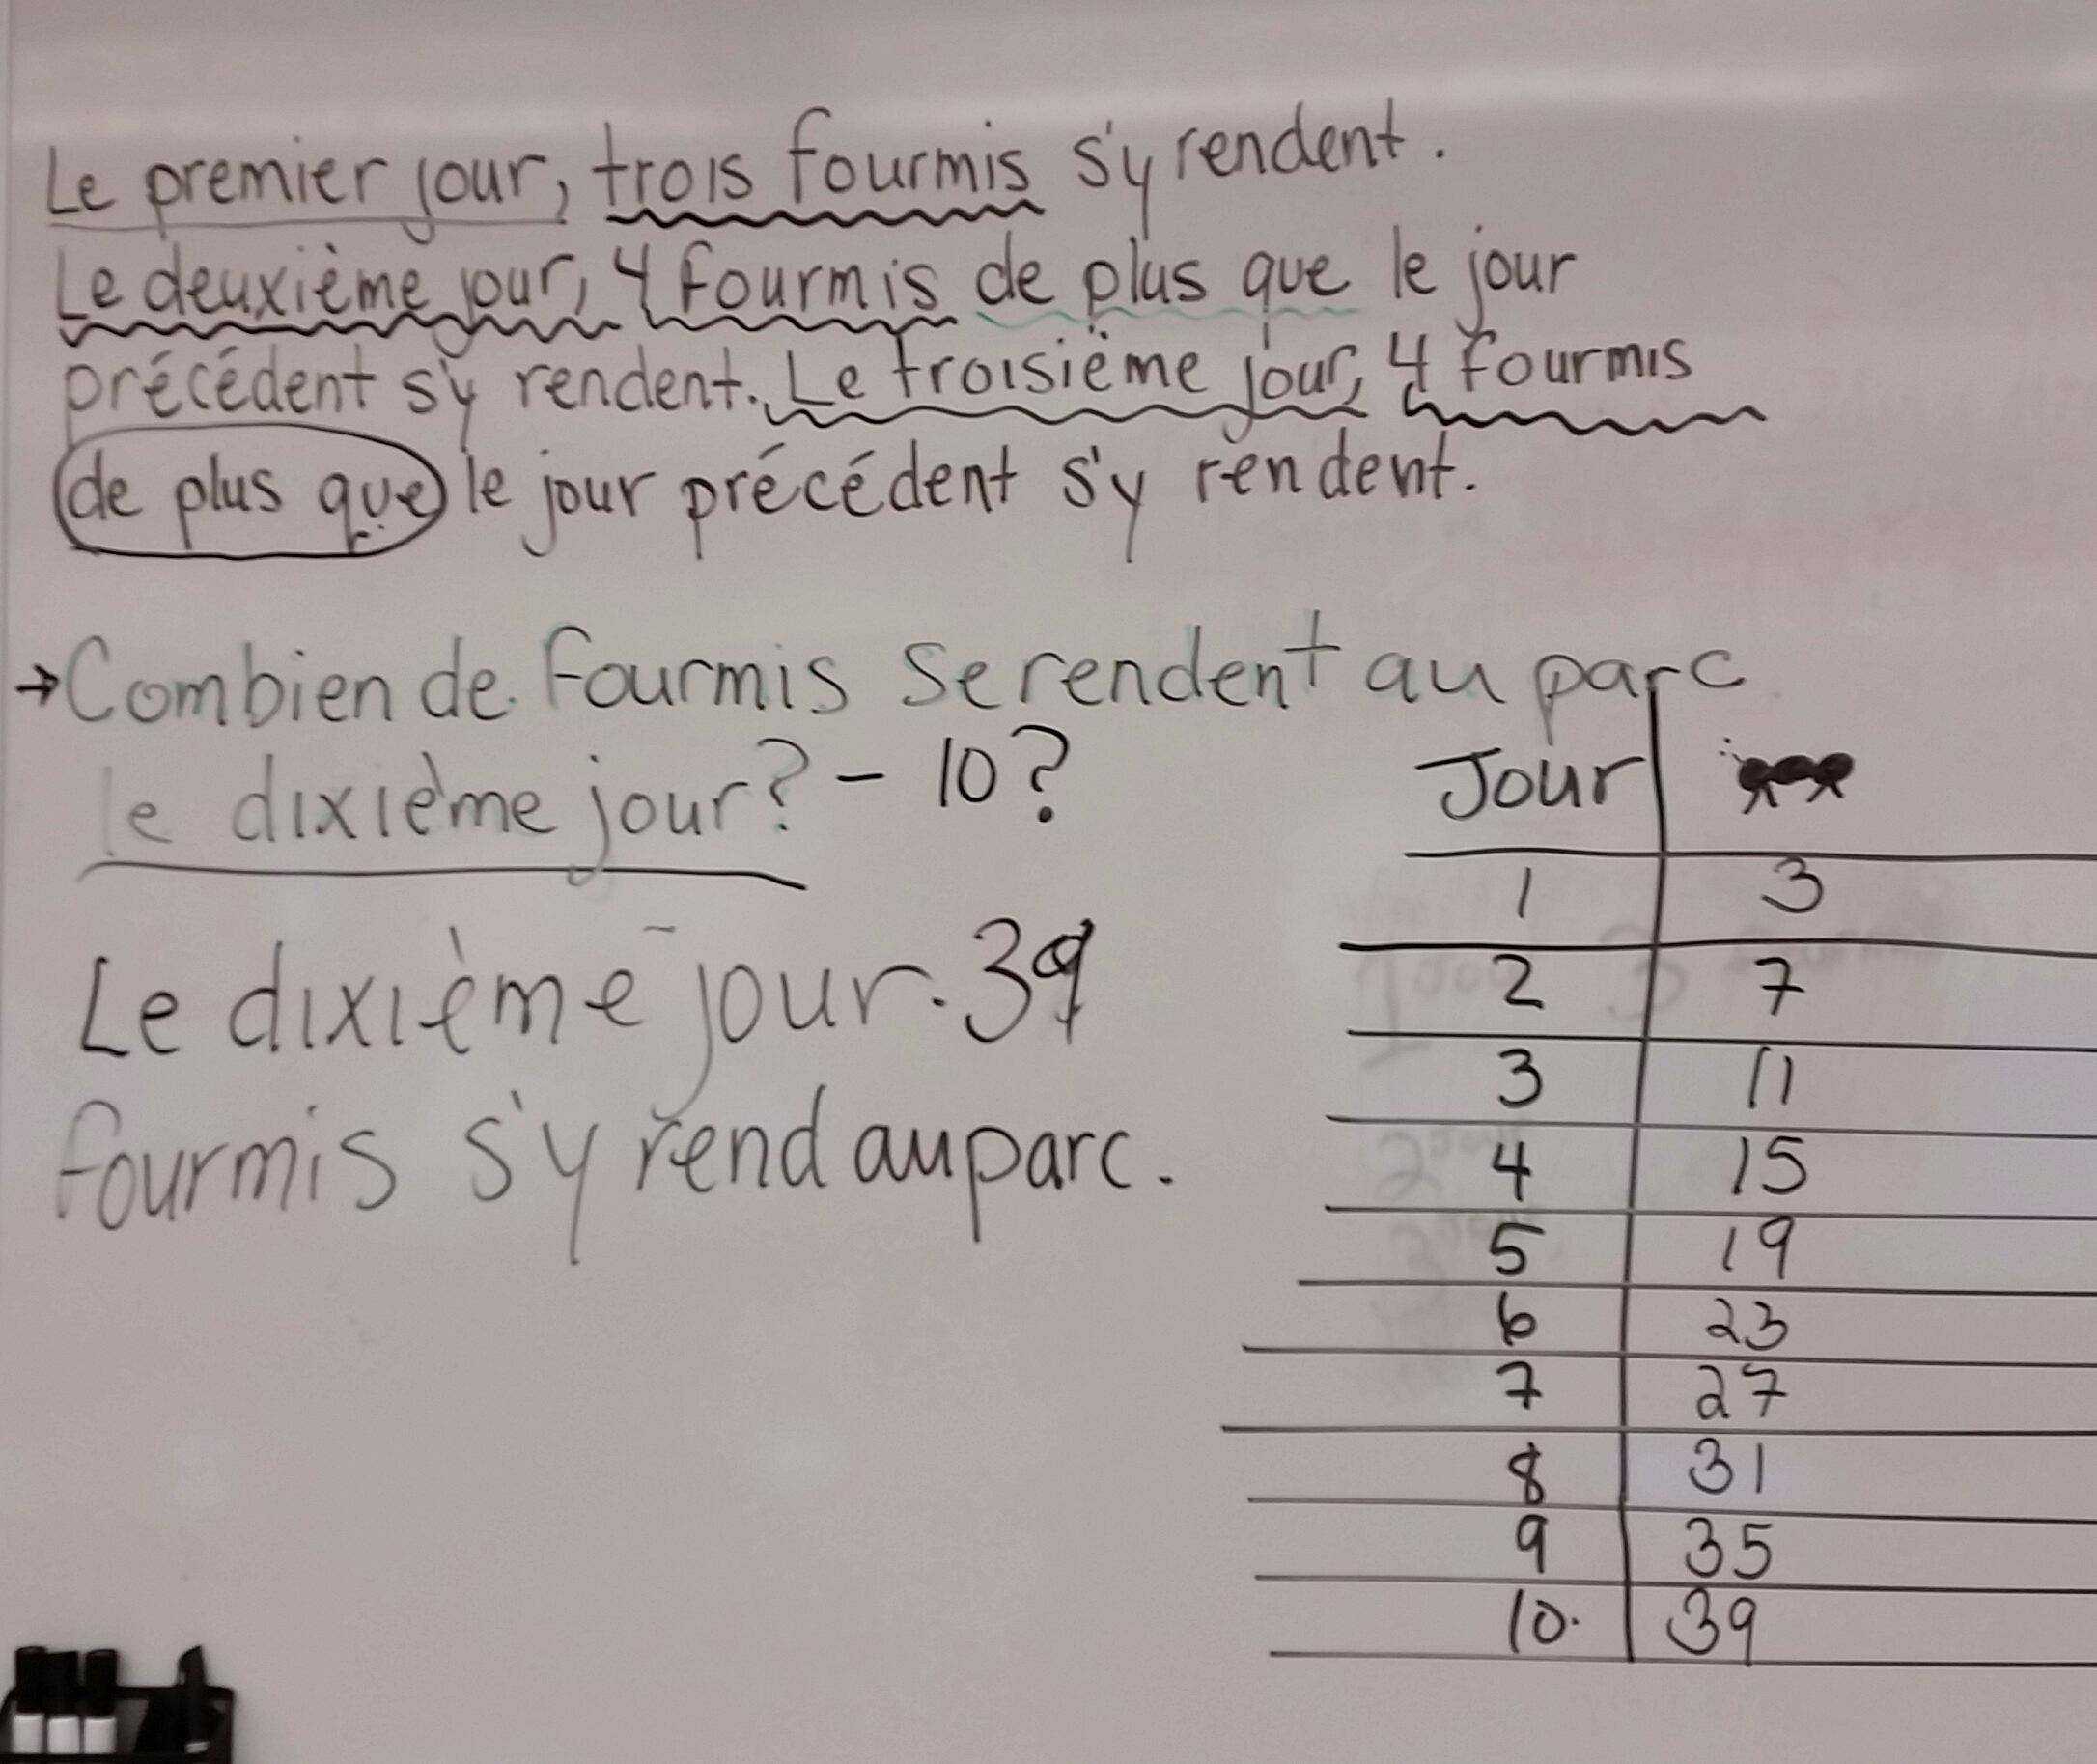 Le premier jour, trois fourmis s'y rendent.
Le deuxième jour, 4 fourmis de plus que le jour
précédent s'y rendent. Le troisième jour, 4 fourmis
de plus que le jour précédent s'y rendent.
→ Combien de fourmis se rendent au parc
le dixième jour? - 10?
Le dixième jour. 39
fourmis s'y rend au parc.
Jour
1 3
2 7
3 11
4 15
5 19
6 23
7 27
8 31
9 35
10. 39